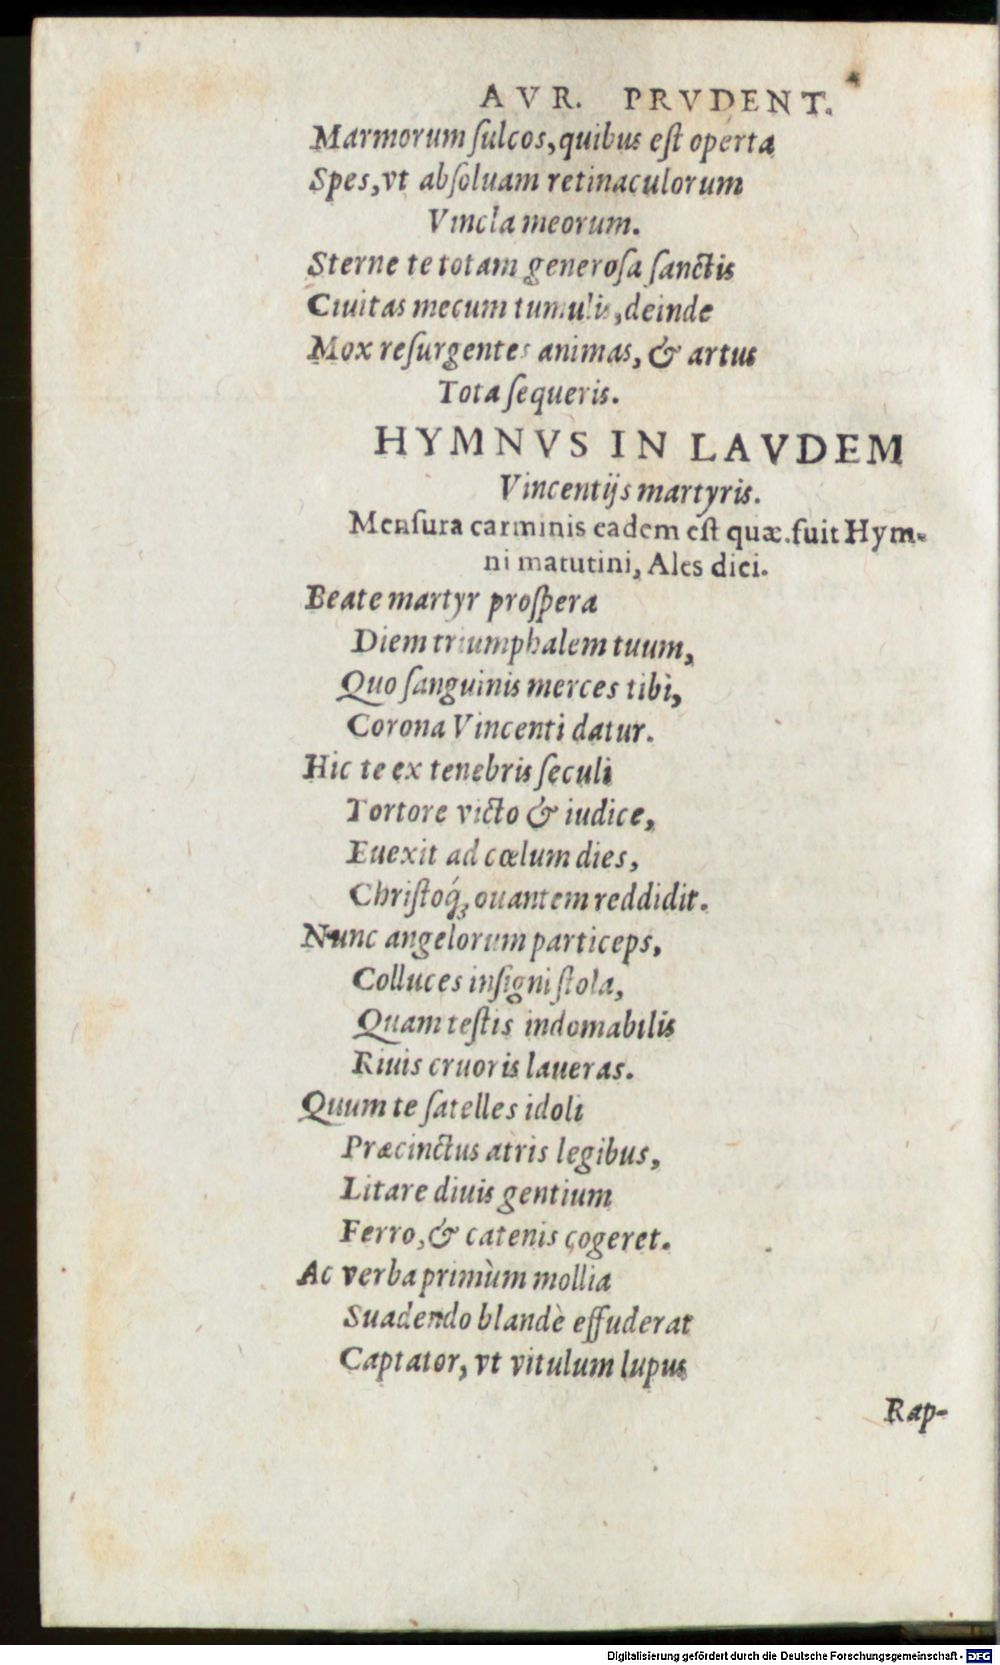 AVR. PRVDENT.
Marmorum ſulcos, quibus eſt operta
Spes, vt abſoluam retinaculorum
Vincla meorum.
Sterne te totam generoſa ſanctis
Ciuitas mecum tumulis, deinde
Mox reſurgentes animas, & artus
Tota ſequeris.
HYMNVS IN LAVDEM
Vincentijs martyris.
Menſura carminis eadem eſt quæ fuit Hym-
ni matutini, Ales diei.
Beate martyr proſpera
Diem triumphalem tuum,
Quo ſanguinis merces tibi,
Corona Vincenti datur.
Hic te ex tenebris ſeculi
Tortore victo & iudice,
Euexit ad cœlum dies,
Chriſtoq́ꝫ ouantem reddidit.
Nunc angelorum particeps,
Colluces inſigni ſtola,
Quam teſtis indomabilis
Riuis cruoris laueras.
Quum te ſatelles idoli
Præcinctus atris legibus,
Litare diuis gentium
Ferro, & catenis cogeret.
Ac verba primùm mollia
Suadendo blandè effuderat
Captator, vt vitulum lupus
Rap-
Digitalisierung gefördert durch die Deutsche Forschungsgemeinschaft - DFG